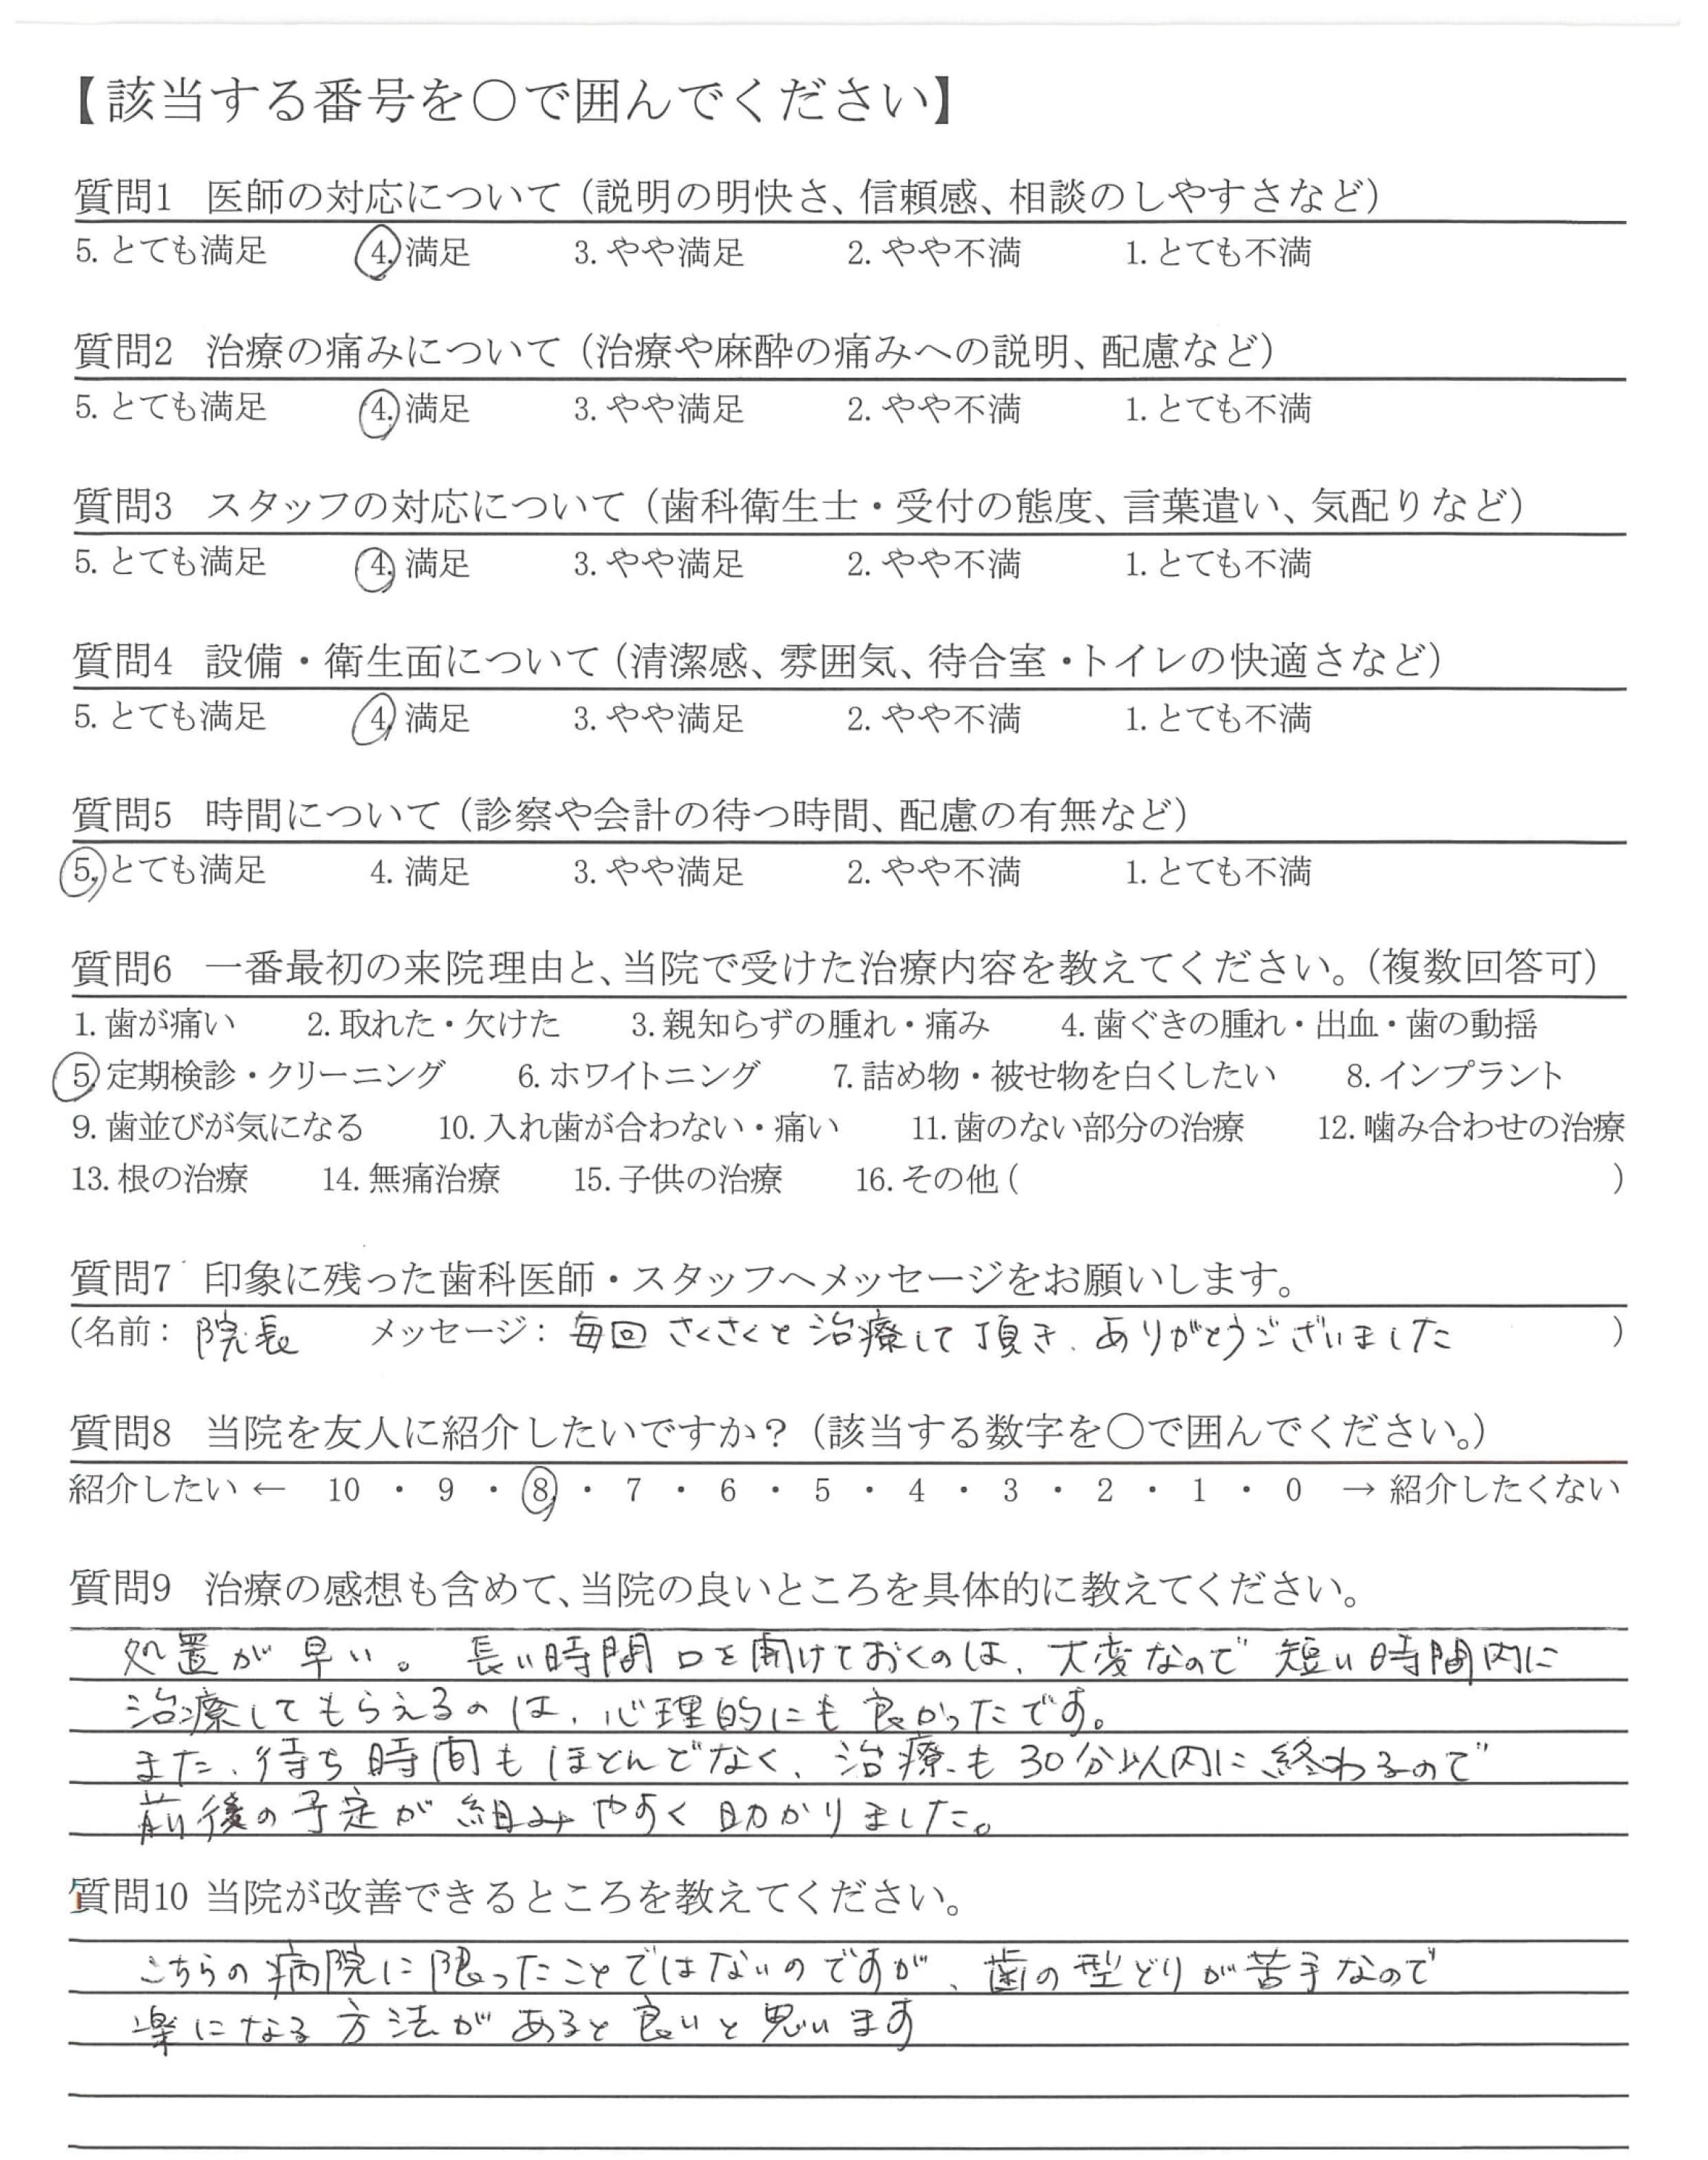 【該当する番号を〇で囲んでください】
質問1 医師の対応について（説明の明快さ、信頼感、相談のしやすさなど）
5. とても満足 4. 満足 3. やや満足 2. やや不満 1. とても不満
質問2 治療の痛みについて（治療や麻酔の痛みへの説明、配慮など）
5. とても満足 4. 満足 3. やや満足 2. やや不満 1. とても不満
質問3 スタッフの対応について（歯科衛生士・受付の態度、言葉遣い、気配りなど）
5. とても満足 4. 満足 3. やや満足 2. やや不満 1. とても不満
質問4 設備・衛生面について（清潔感、雰囲気、待合室・トイレの快適さなど）
5. とても満足 4. 満足 3. やや満足 2. やや不満 1. とても不満
質問5 時間について（診察や会計の待つ時間、配慮の有無など）
5. とても満足 4. 満足 3. やや満足 2. やや不満 1. とても不満
質問6 一番最初の来院理由と、当院で受けた治療内容を教えてください。（複数回答可）
1. 歯が痛い 2. 取れた・欠けた 3. 親知らずの腫れ・痛み 4. 歯ぐきの腫れ・出血・歯の動揺
5. 定期検診・クリーニング 6. ホワイトニング 7. 詰め物・被せ物を白くしたい 8. インプラント
9. 歯並びが気になる 10. 入れ歯が合わない・痛い 11. 歯のない部分の治療 12. 噛み合わせの治療
13. 根の治療 14. 無痛治療 15. 子供の治療 16. その他（ ）
質問7 印象に残った歯科医師・スタッフへメッセージをお願いします。
（名前：院長 メッセージ：毎回さくさくと治療して頂き、ありがとうございました ）
質問8 当院を友人に紹介したいですか？（該当する数字を〇で囲んでください。）
紹介したい ← 10 ・ 9 ・ 8 ・ 7 ・ 6 ・ 5 ・ 4 ・ 3 ・ 2 ・ 1 ・ 0 → 紹介したくない
質問9 治療の感想も含めて、当院の良いところを具体的に教えてください。
処置が早い。長い時間口を開けておくのは、大変なので短い時間内に
治療してもらえるのは、心理的にも良かったです。
また、待ち時間もほとんどなく、治療も30分以内に終わるので
前後の予定が組みやすく助かりました。
質問10 当院が改善できるところを教えてください。
こちらの病院に限ったことではないのですが、歯の型どりが苦手なので
楽になる方法があると良いと思います